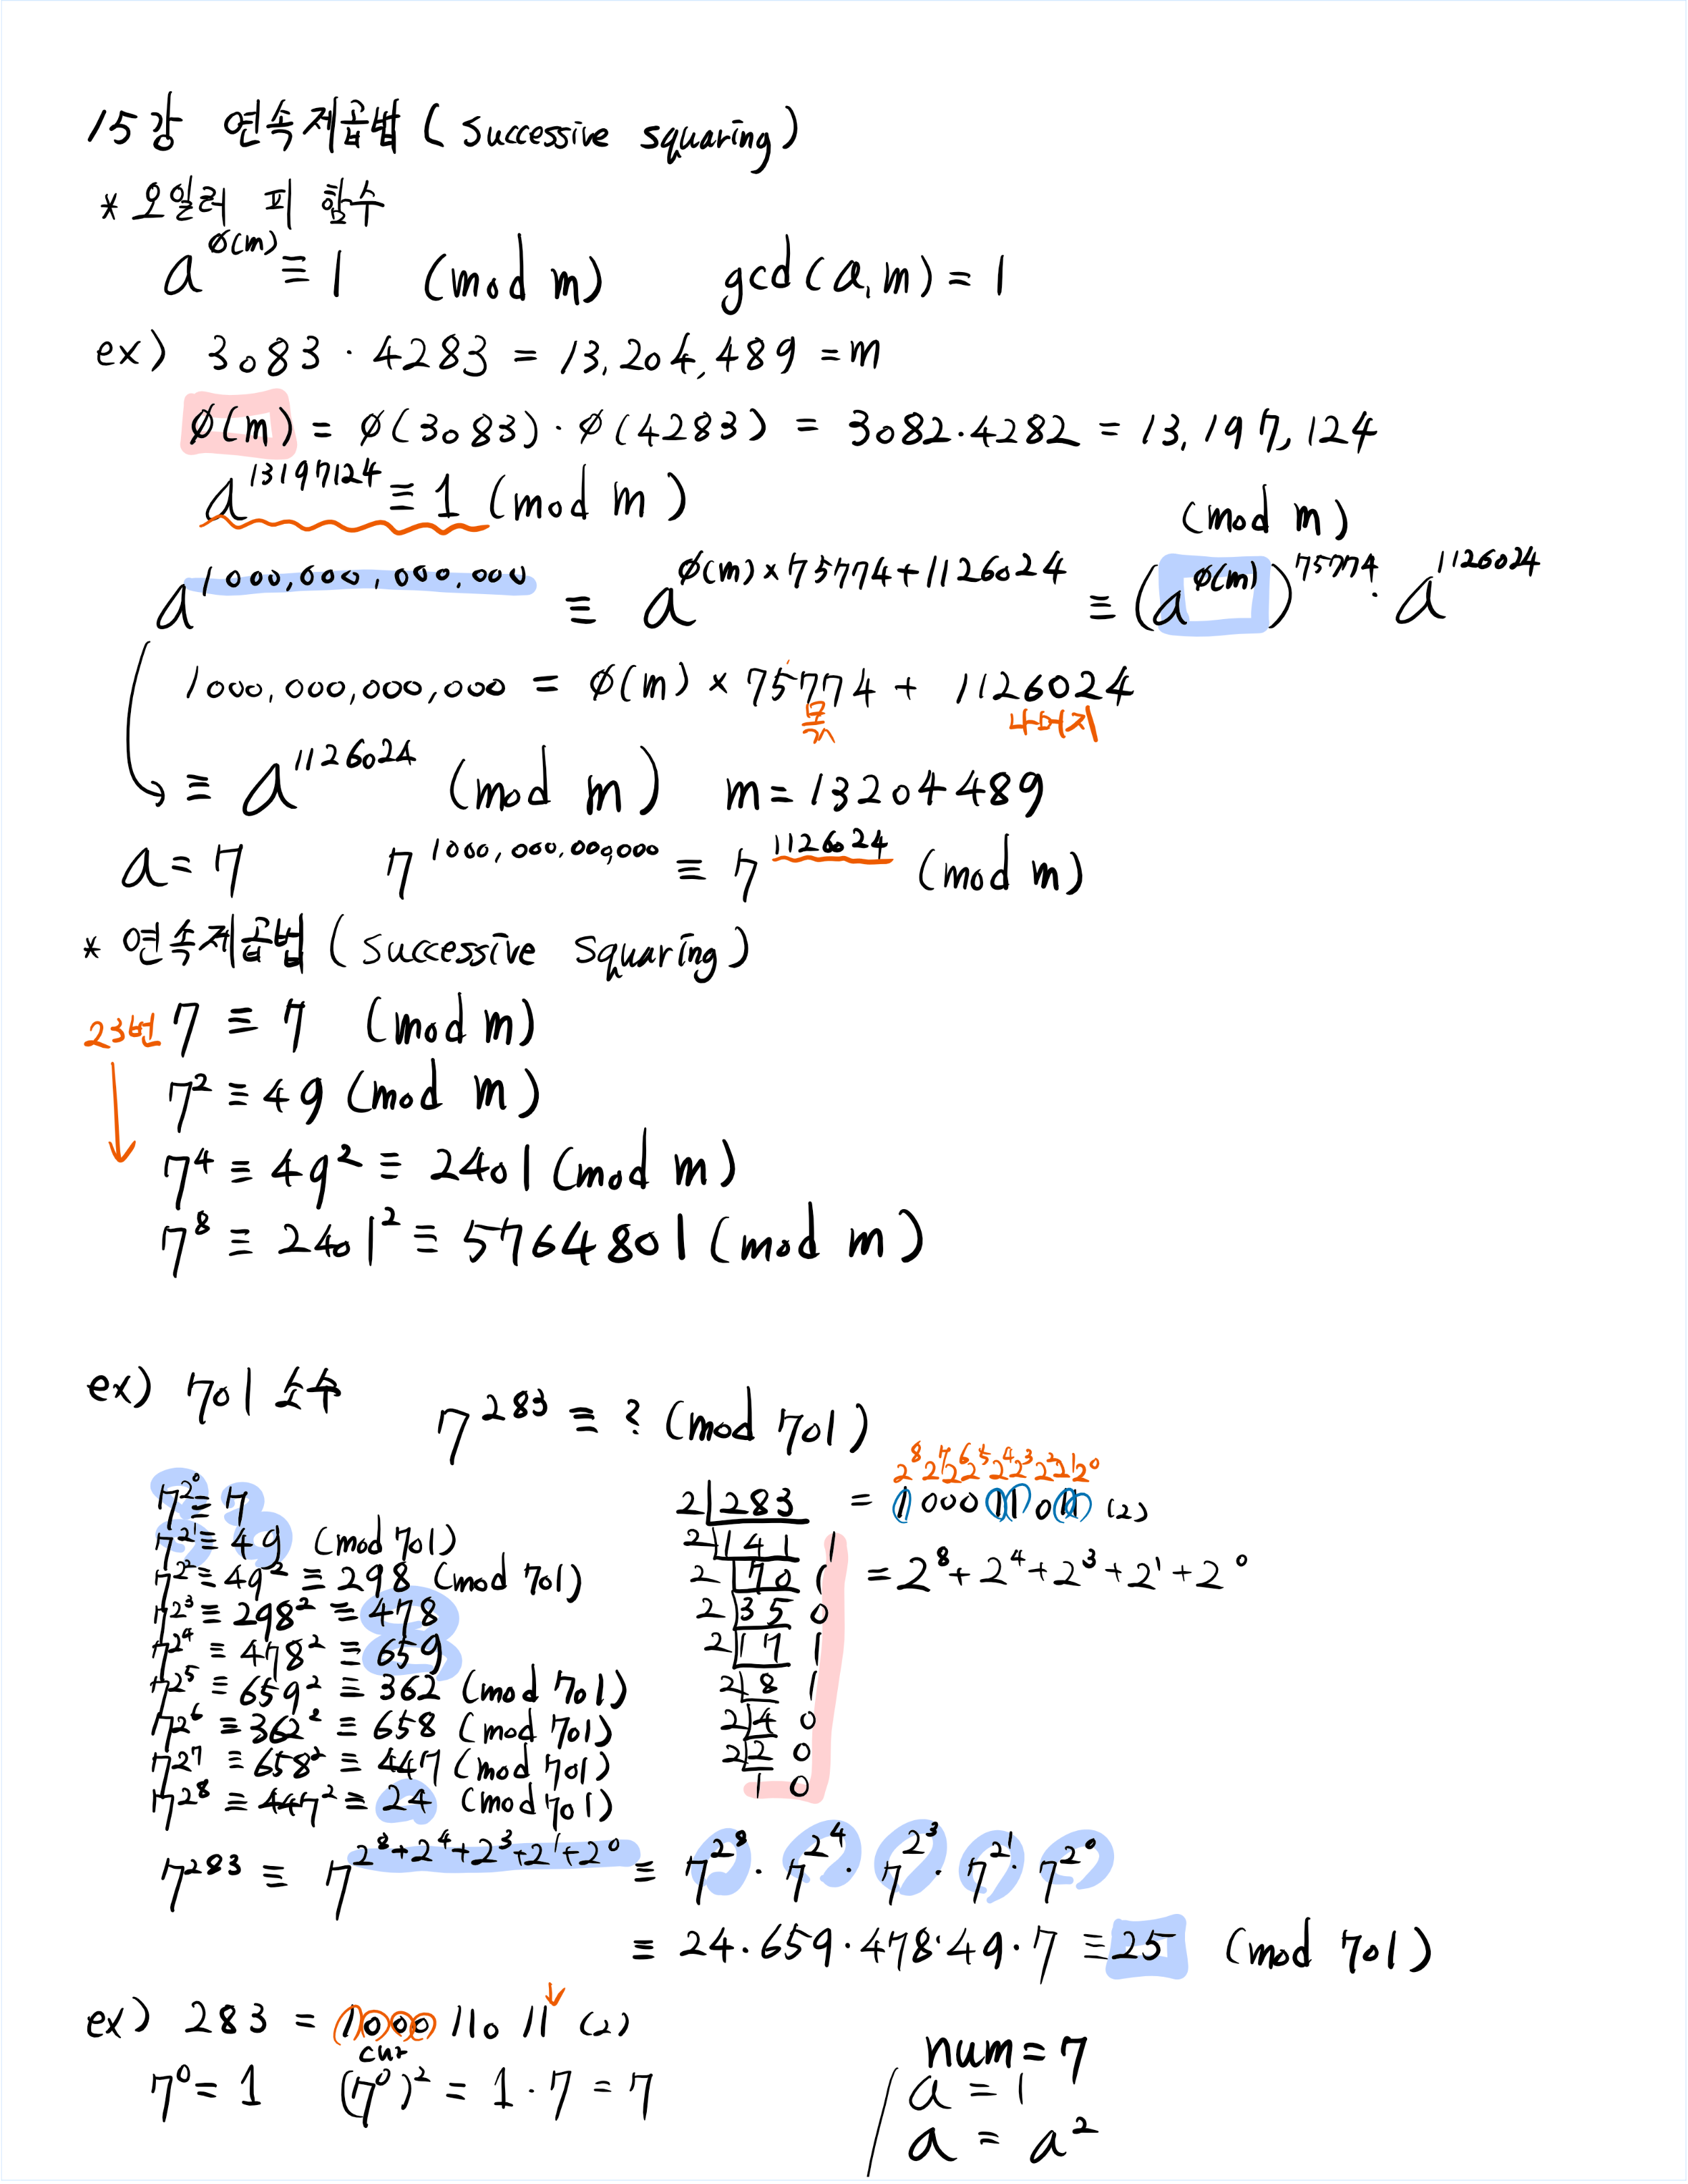 15강 연속제곱법 ( Successive squaring )
* 오일러 피 함수
a^ø(m) ≡ 1 (mod m) gcd(a, m) = 1
ex) 3083 · 4283 = 13,204,489 = m
ø(m) = ø(3083) · ø(4283) = 3082 · 4282 = 13,197,124
a^13197124 ≡ 1 (mod m)
(mod m)
a^1000,000,000,000 ≡ a^ø(m)×75774+1126024 ≡ (a^ø(m))^75774 · a^1126024
1000,000,000,000 = ø(m) × 75774 + 1126024
몫 나머지
≡ a^1126024 (mod m) m = 13204489
a = 7 7^1000,000,000,000 ≡ 7^1126024 (mod m)
* 연속제곱법 ( Successive Squaring )
23번 7 ≡ 7 (mod m)
7^2 ≡ 49 (mod m)
7^4 ≡ 49^2 ≡ 2401 (mod m)
7^8 ≡ 2401^2 ≡ 5764801 (mod m)
ex) 701 소수 7^283 ≡ ? (mod 701)
7^2^0 ≡ 7
7^2^1 ≡ 49 (mod 701)
7^2^2 ≡ 49^2 ≡ 298 (mod 701)
7^2^3 ≡ 298^2 ≡ 478
7^2^4 ≡ 478^2 ≡ 659
7^2^5 ≡ 659^2 ≡ 362 (mod 701)
7^2^6 ≡ 362^2 ≡ 658 (mod 701)
7^2^7 ≡ 658^2 ≡ 447 (mod 701)
7^2^8 ≡ 447^2 ≡ 24 (mod 701)
2^8 2^7 2^6 2^5 2^4 2^3 2^2 2^1 2^0
2 283 = 100011011 (2)
2 141 1
2 70 1 = 2^8 + 2^4 + 2^3 + 2^1 + 2^0
2 35 0
2 17 1
2 8 1
2 4 0
2 2 0
1 0
7^283 ≡ 7^2^8+2^4+2^3+2^1+2^0 ≡ 7^2^8 · 7^2^4 · 7^2^3 · 7^2^1 · 7^2^0
≡ 24 · 659 · 478 · 49 · 7 ≡ 25 (mod 701)
ex) 283 = 100011011 (2)
cur
7^0 = 1 (7^0)^2 = 1 · 7 = 7
num = 7
a = 1
a = a^2